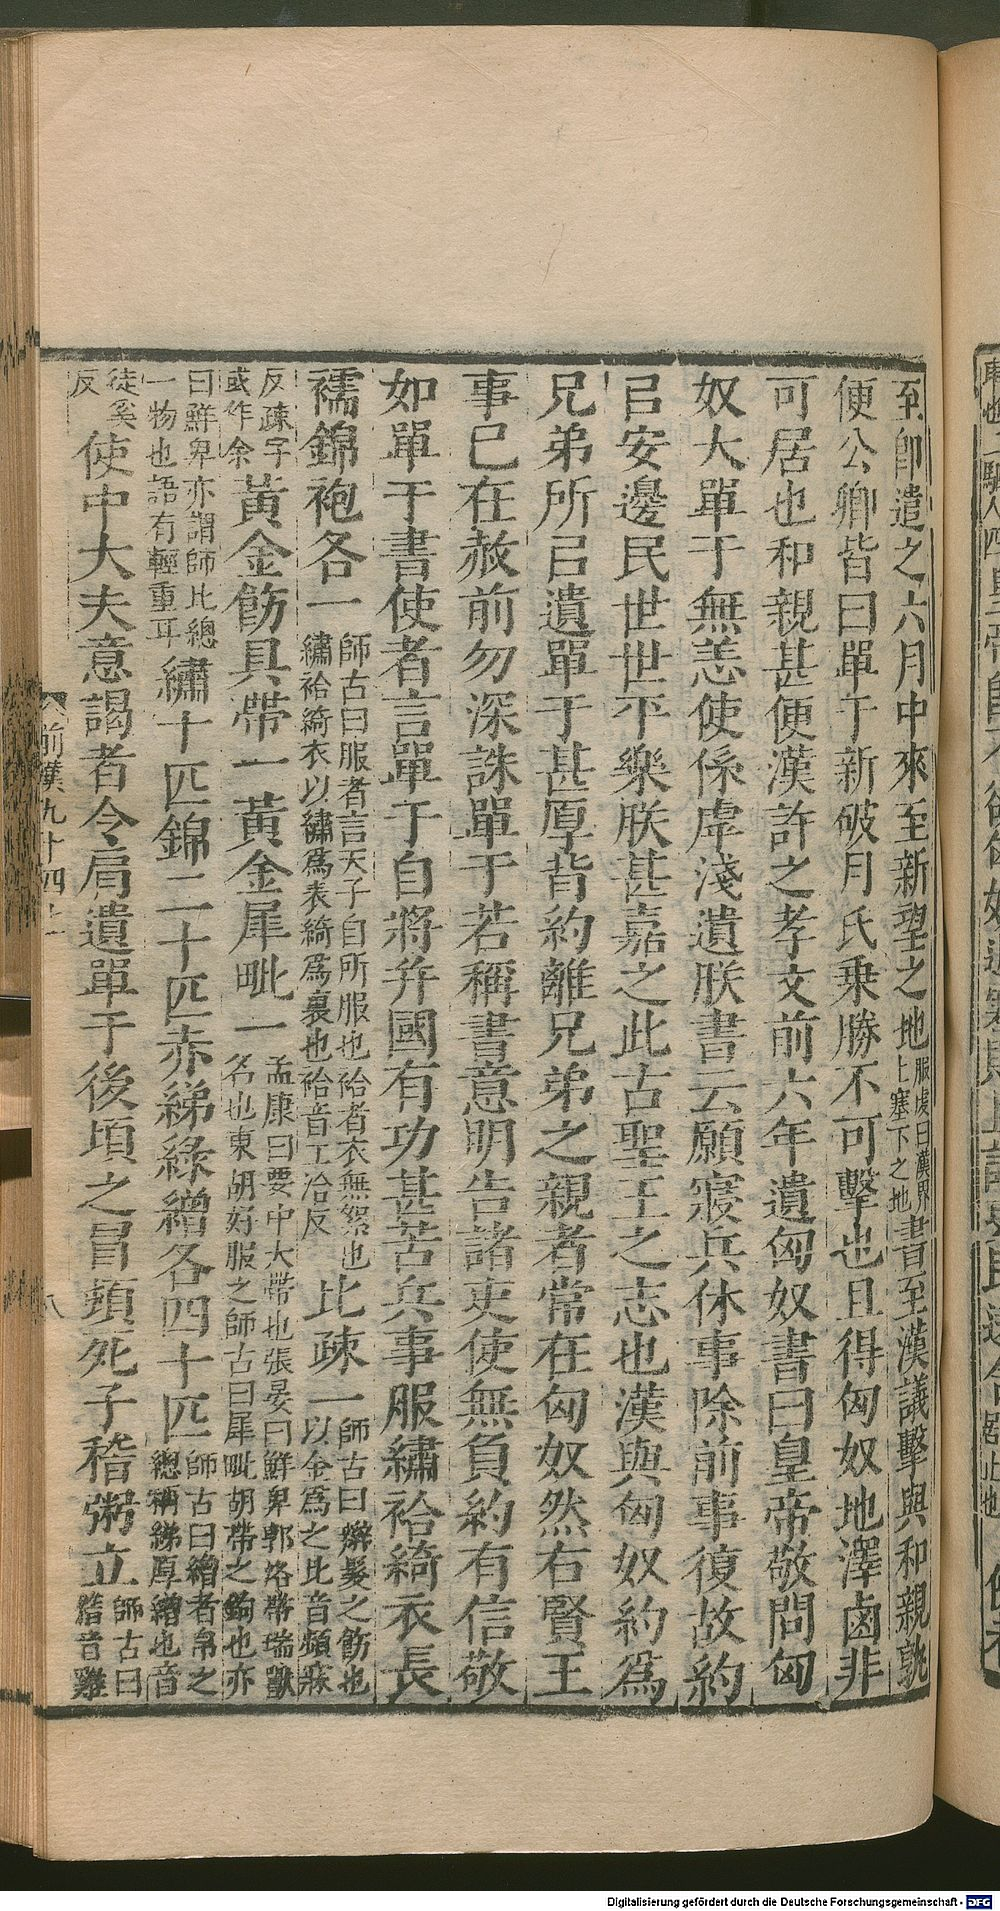 至卽遣之六月中來至新望之地服虔曰漢界上塞下之地書至漢議擊與和親孰
便公卿皆曰單于新破月氏乗勝不可擊也且得匈奴地澤鹵非
可居也和親甚便漢許之孝文前六年遺匈奴書曰皇帝敬問匈
奴大單于無恙使係虖淺遺朕書云願寢兵休事除前事復故約
㠯安邊民世世平樂朕甚嘉之此古聖王之志也漢與匈奴約爲
兄弟所㠯遺單于甚厚背約離兄弟之親者常在匈奴然右賢王
事已在赦前勿深誅單于若稱書意明告諸吏使無負約有信敬
如單于書使者言單于自將并國有功甚苦兵事服繡袷綺衣長
襦錦袍各一師古曰服者言天子自所服也袷者衣無絮也繡袷綺衣以繡爲表綺爲裏也袷音工洽反比疎一師古曰辮髮之飾也以金爲之比音頻寐
反疎字或作余黃金飭具帶一黃金犀毗一孟康曰要中大帶也張晏曰鮮卑郭洛帶瑞獸名也東胡好服之師古曰犀毗胡帶之鉤也亦
曰鮮卑亦謂師比總一物也語有輕重耳繡十匹錦二十匹赤綈綠繒各四十匹師古曰繒者帛之總稱綈厚繒也音
徒奚反使中大夫意謁者令肩遺單于後頃之冒頓死子稽粥立師古曰稽音雞
前漢九十四上
八
Digitalisierung gefördert durch die Deutsche Forschungsgemeinschaft - DFG